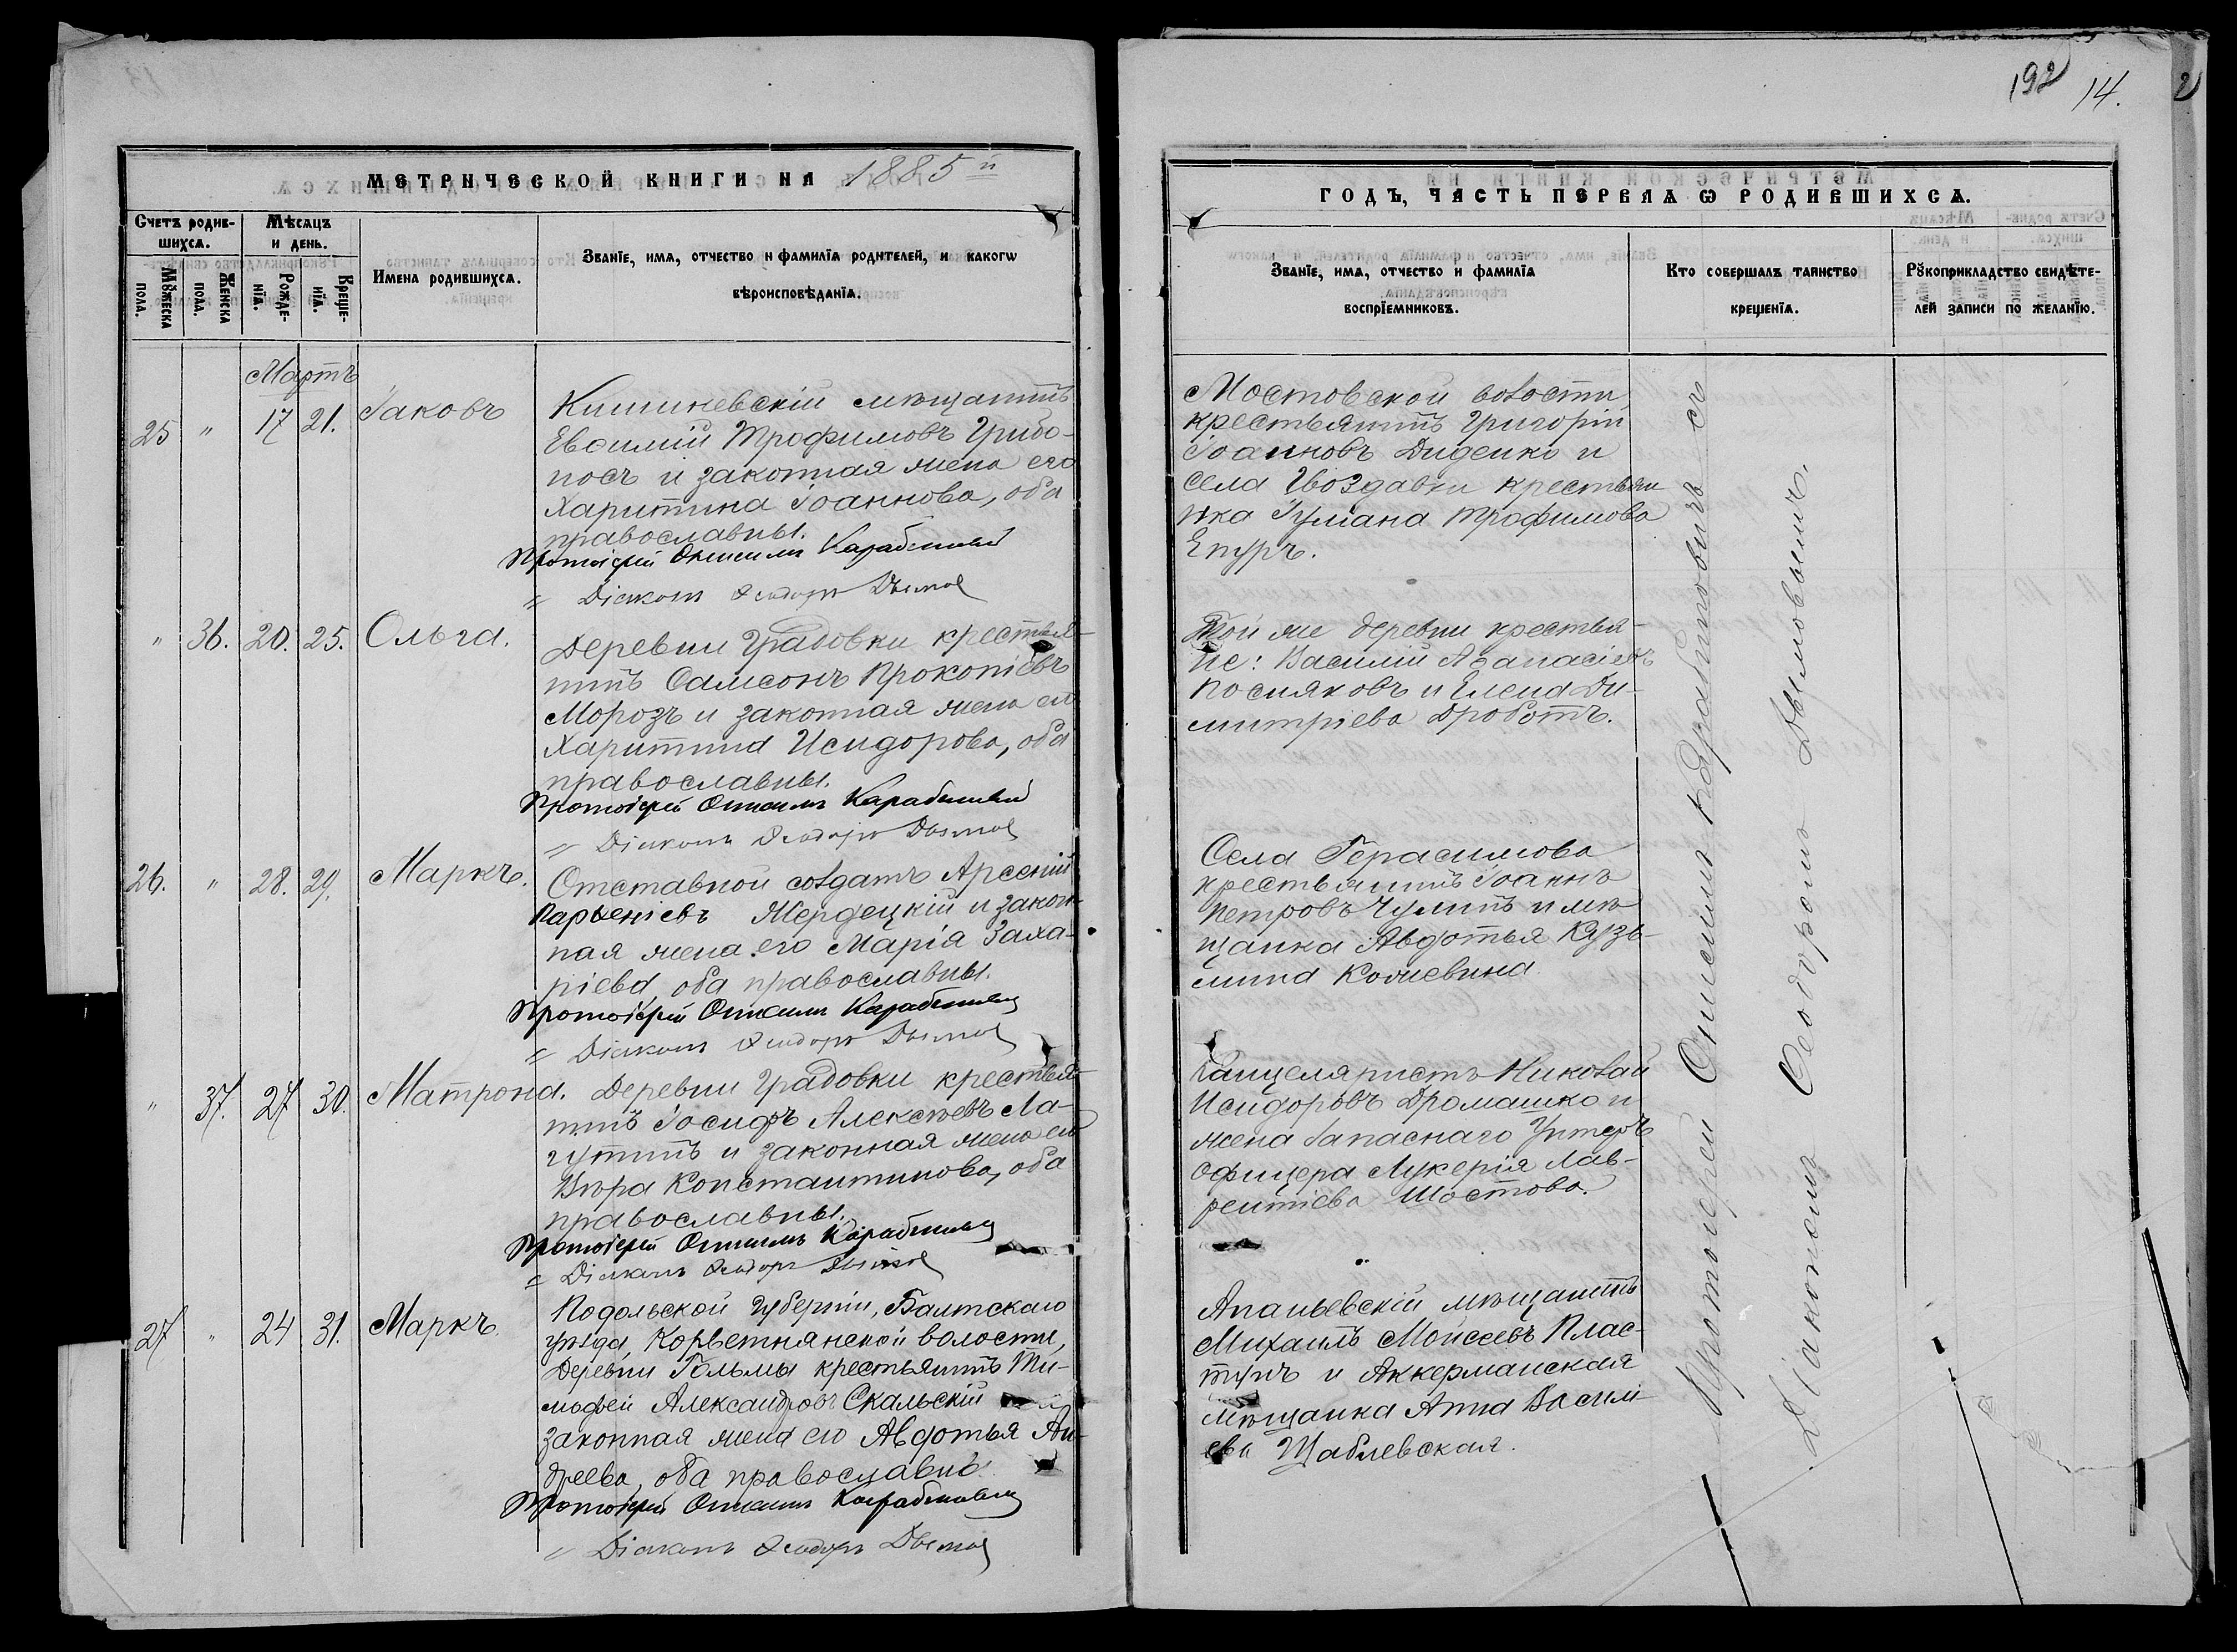 192 14.
МЕТРИЧЕСКОЙ КНИГИ НА 1885 й
Счетъ родив-
шихсѧ.
Мѣсѧцъ
и день.
Мꙋжеска
пола.
Женска
пола.
Рожде-
нїѧ.
Креще-
нїѧ.
Имена родившихсѧ.
Званїе, имѧ, отчество и фамилїѧ родителей, и какогѡ
вѣроисповѣданїѧ.
Мартъ
25 " 17 21. Іаковъ
Кишиневскій мѣщанинъ
Евѳимій Трофимовъ Грибо-
носъ и законная жена его
Харитина Іоаннова, оба
православны.
Протоіерей Онисимъ
Діаконъ Ѳеодоръ Дымов
" 36. 20. 25. Ольга.
Деревни Градовки крестья-
нинъ Самсонъ Прокопіевъ
Морозъ и законная жена его
Харитина Исидорова, оба
православны.
Протоіерей Онисимъ
Діаконъ Ѳеодоръ Дымов
26. " 28. 29. Маркъ.
Отставной солдатъ Арсеній
Парѳеніевъ Жердецкій и закон-
ная жена его Марія Заха-
ріева оба православны.
Протоіерей Онисимъ
Діаконъ Ѳеодоръ Дымов
" 37. 27 30. Матрона.
Деревни Градовки крестья-
нинъ Іосифъ Алексѣевъ Ла-
гутинъ и законная жена его
Вѣра Константинова, оба
православны.
Протоіерей Онисимъ
Діаконъ Ѳеодоръ Дымов
27 " 24 31. Маркъ.
Подольской губерніи, Балтскаго
уѣзда, волости,
деревни Гольмы крестьянинъ Ти-
мофей Александровъ Скальскій
законная жена его Авдотья Ан-
дреева, оба православнѣ.
Протоіерей Онисимъ
Діаконъ Ѳеодоръ Дымов
ГОДЪ, ЧАСТЬ ПЕРВАѦ Ѡ РОДИВШИХСѦ.
Званїе, имѧ, отчество и фамилїѧ
воспрїемниковъ.
Кто совершалъ таинство
крещенїѧ.
Рꙋкоприкладство свидѣте-
лей записи по желанїю.
Мостовской волости
крестьянинъ Григорій
Іоанновъ Диденко и
села Гвоздавки крестьян
нка Іуліана Трофимова
Епуръ.
Той же деревни крестья-
не: Василій Аѳанасіевъ
Посняковъ и Елена Ди-
митріева Дроботъ.
Села Герасимова
крестьянинъ Іоаннъ
Петровъ Чулинъ и мѣ-
щанка Авдотья Кузь-
мина
Канцеляристъ Николай
Исидоровъ Дромашко и
жена Запаснаго Унтеръ
офицера Лукерія Лав-
рентіева Шостова.
Ананьевскій мѣщанинъ
Михаилъ Моисеевъ Плас-
тунъ и Аккерманская
мѣщанка Анна Васили-
ева Щаблевская.
Протоіерей Онисимъ съ
Діакономъ Ѳеодоромъ Дымовымъ.